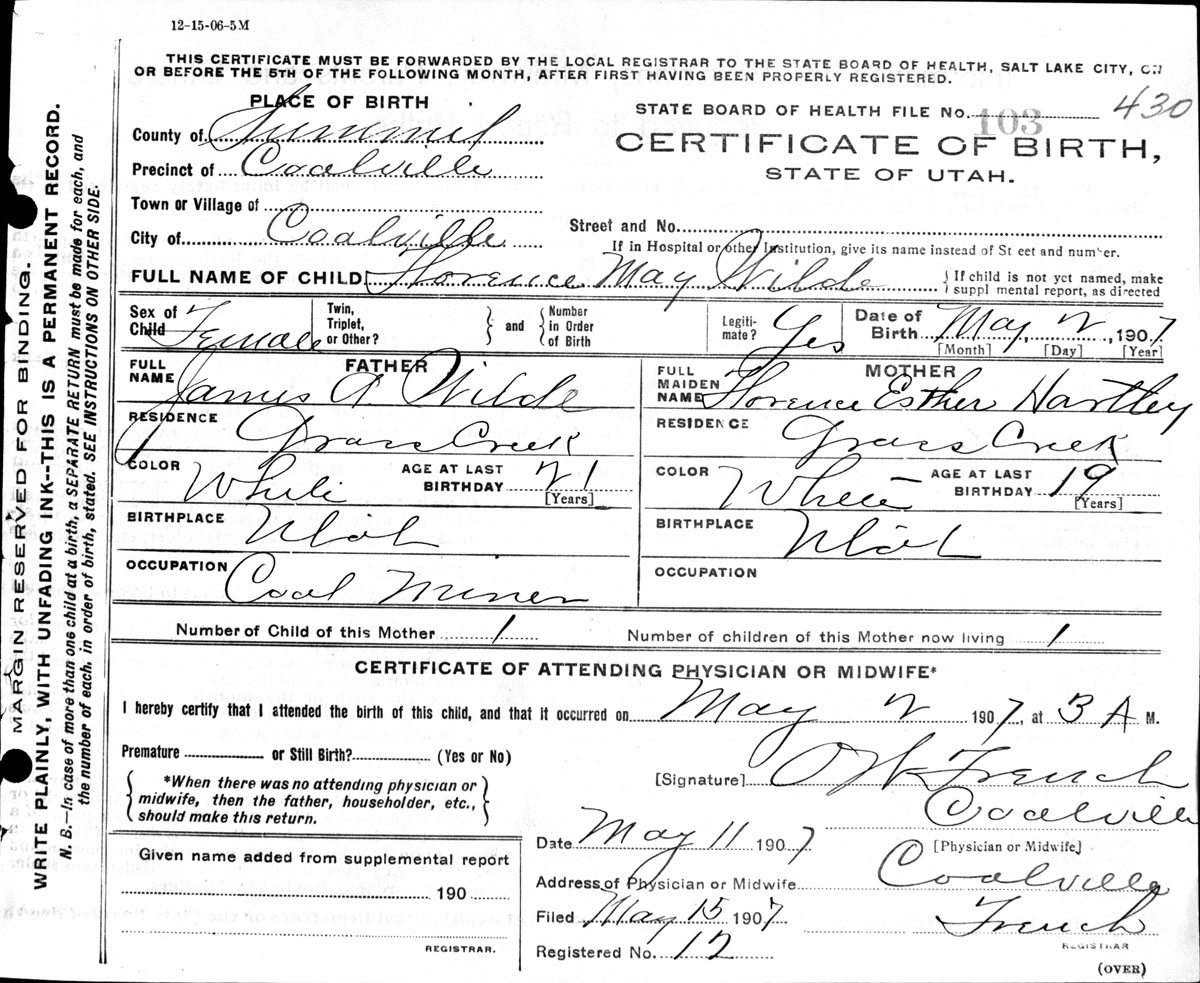 12-15-06-5M
THIS CERTIFICATE MUST BE FORWARDED BY THE LOCAL REGISTRAR TO THE STATE BOARD OF HEALTH, SALT LAKE CITY, ON
OR BEFORE THE 5TH OF THE FOLLOWING MONTH, AFTER FIRST HAVING BEEN PROPERLY REGISTERED.
PLACE OF BIRTH
County of Summit
Precinct of Coalville
Town or Village of
City of Coalville
STATE BOARD OF HEALTH FILE No. 103 430
CERTIFICATE OF BIRTH,
STATE OF UTAH.
Street and No.
If in Hospital or other Institution, give its name instead of St eet and number.
FULL NAME OF CHILD Florence May Wilde { If child is not yet named, make
suppl mental report, as directed
Sex of Child Female
Twin, Triplet, or Other? } and { Number in Order of Birth
Legiti-mate? Yes
Date of Birth May 2, 1907
[Month] [Day] [Year]
FATHER
FULL NAME James A Wilde
RESIDENCE Grass Creek
COLOR White AGE AT LAST BIRTHDAY 21
[Years]
BIRTHPLACE Utah
OCCUPATION Coal Miner
MOTHER
FULL MAIDEN NAME Florence Esther Hartley
RESIDENCE Grass Creek
COLOR White AGE AT LAST BIRTHDAY 19
[Years]
BIRTHPLACE Utah
OCCUPATION
Number of Child of this Mother 1 Number of children of this Mother now living 1
CERTIFICATE OF ATTENDING PHYSICIAN OR MIDWIFE*
I hereby certify that I attended the birth of this child, and that it occurred on May 2 1907, at 3 A M.
Premature or Still Birth? (Yes or No)
{ *When there was no attending physician or
midwife, then the father, householder, etc.,
should make this return. }
[Signature] French
Coalville
[Physician or Midwife]
Given name added from supplemental report
190
REGISTRAR.
Date May 11 1907
Address of Physician or Midwife Coalville
Filed May 15 1907 French
REGISTRAR
Registered No. 12
(OVER)
MARGIN RESERVED FOR BINDING.
WRITE PLAINLY, WITH UNFADING INK--THIS IS A PERMANENT RECORD.
N. B.—In case of more than one child at a birth, a SEPARATE RETURN must be made for each, and
the number of each. in order of birth, stated. SEE INSTRUCTIONS ON OTHER SIDE.